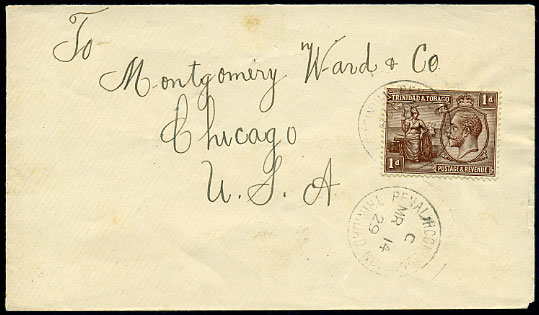 To
Montgomery Ward & Co
Chicago
U. S. A
TRINIDAD & TOBAGO 1d
1d POSTAGE & REVENUE
PENAL ROCK
C
MR 14
29